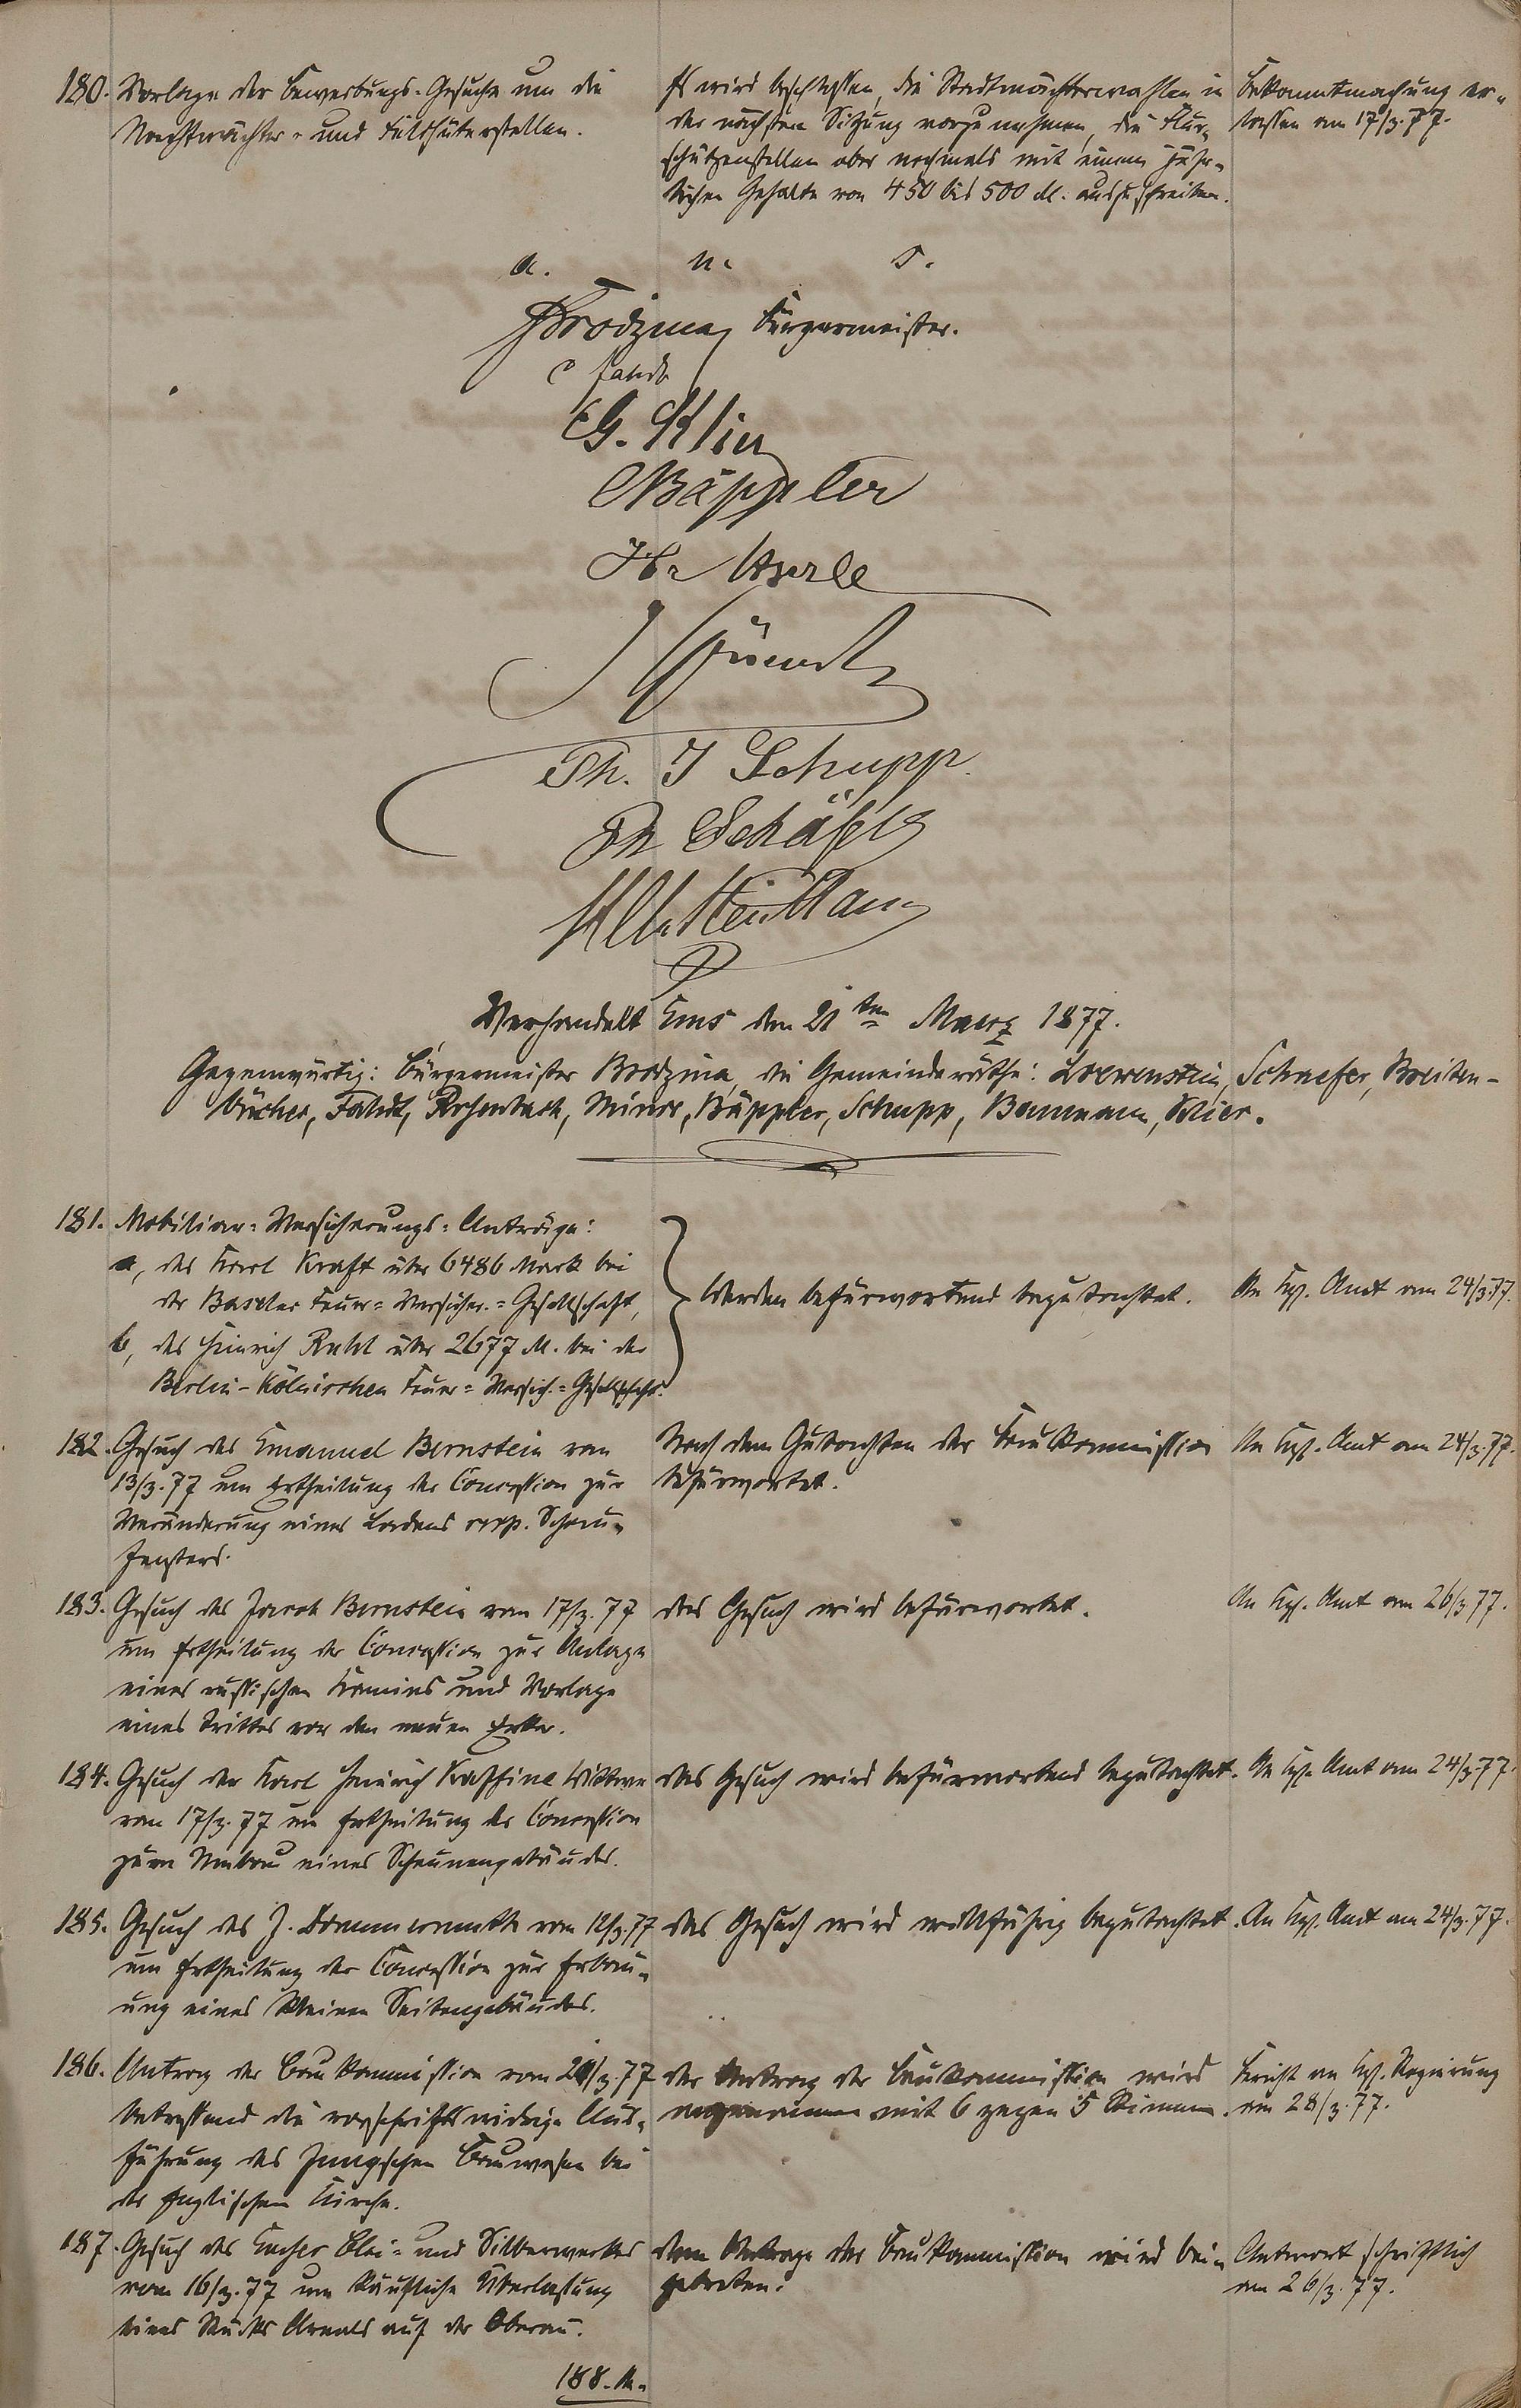 180. Vorlage der Bewerbungs-Gesuche um die
Nachtwächter- und Feldhüterstellen.
Es wird beschlossen, die Nachtwächterwahlen in
der nächsten Sitzung vorzunehmen, die Flur-
schützenstellen aber nochmals mit einem jähr-
lichen Gehalte von 450 bis 500 M. auszuschreiben.
Bekanntmachung er-
lassen am 17/3.77.
a. u. s.
Brodzina, Bürgermeister.
Fahdt
G. Klier
Bäppler
Th. J Schupp.
Ph Schäfer
Verhandelt Ems den 21ten Maerz 1877.
Gegenwärtig: Bürgermeister Brodzina, die Gemeinderäthe: Loewenstein, Schaefer, Breiten-
bücher, Fahdt, Rosenbach, Minor, Bäppler, Schupp, Baumann, Klier.
181. Mobiliar-Versicherungs-Anträge:
a, des Karl Kraft über 6486 Mark bei
der Baseler Feuer-Versicher.-Gesellschaft,
b, des Heinrich Ruhl über 2677 M. bei der
Berlin-Kölnischen Feuer-Versich.-Gesellschaft.
Werden befürwortend begutachtet.
An Kgl. Amt am 24/3.77.
182. Gesuch des Emanuel Bernstein vom
13/3.77 um Ertheilung der Concession zur
Veränderung eines Ladens resp. Schau-
fensters.
Nach dem Gutachten der Baukommission
befürwortet.
An Kgl. Amt am 24/3.77.
183. Gesuch des Jacob Bernstein vom 17/3.77
um Ertheilung der Concession zur Anlage
eines russischen Kamins und Vorlage
eines Trittes vor den neuen Erker.
das Gesuch wird befürwortet.
An Kgl. Amt am 26/3.77.
184. Gesuch der Karl Heinrich Wittwe
vom 17/3.77 um Ertheilung der Concession
zum Umbau eines Scheunengebäudes.
das Gesuch wird befürwortend begutachtet.
An Kgl. Amt am 24/3.77.
185. Gesuch des J. Dommermuth vom 12/3.77
um Ertheilung der Concession zur Erbau-
ung eines kleinen Seitengebäudes.
das Gesuch wird willfährig begutachtet.
An Kgl. Amt am 24/3.77.
186. Antrag der Baukommission vom 20/3.77
betreffend die vorschriftswidrige Aus-
führung des Jungschen Bauwesen bei
der Englischen Kirche.
der Antrag der Baukommission wird
angenommen mit 6 gegen 5 Stimmen.
Bericht an Kgl. Regierung
am 28/3.77.
187. Gesuch des Emser Blei- und Silberwerkes
vom 16/3.77 um käufliche Überlassung
eines Stücks Areals auf der Oberau.
dem Antrage der Baukommission wird bei-
getreten.
Antwort schriftlich
am 26/3.77.
188.